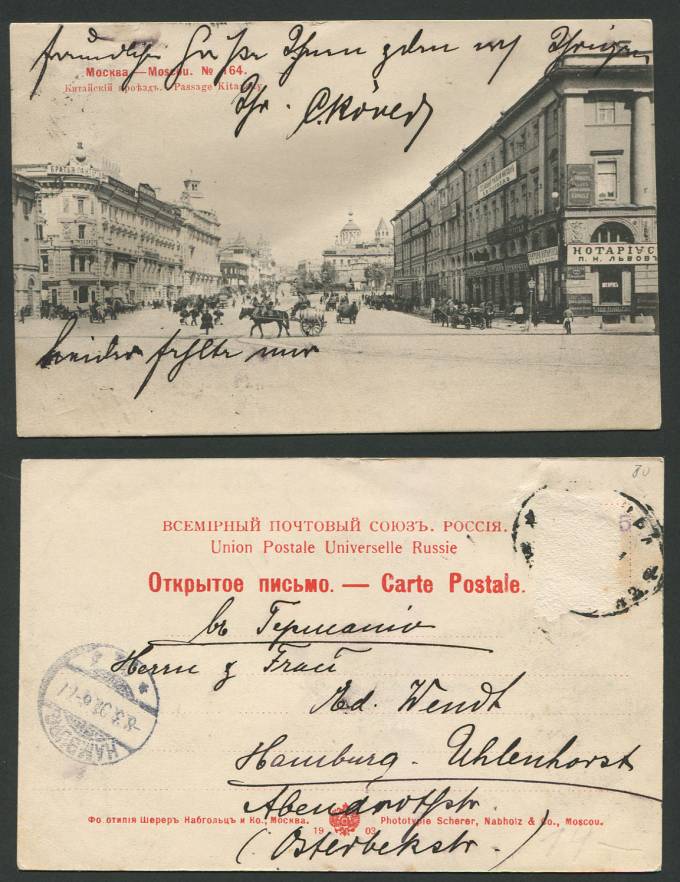 freundliche Grüße Ihnen
Москва.—Moscou. № 164.
Китайскій проѣздъ. Passage Kitaisky
Ihr
БРАТЬЯ
НОТАРІУСЪ
П. Н. ЛЬВОВЪ
leider fehlte mir
80
ВСЕМІРНЫЙ ПОЧТОВЫЙ СОЮЗЪ. РОССІЯ.
Union Postale Universelle Russie
Открытое письмо. — Carte Postale.
въ Германію
Herrn & Frau
Ed. Wendt
Hamburg-Uhlenhorst
Abendrothstr.
(Osterbekstr.)
HAMBURG
Фототипія Шереръ Набгольцъ и Ко., Москва. 1903 Phototypie Scherer, Nabholz & Co., Moscou.